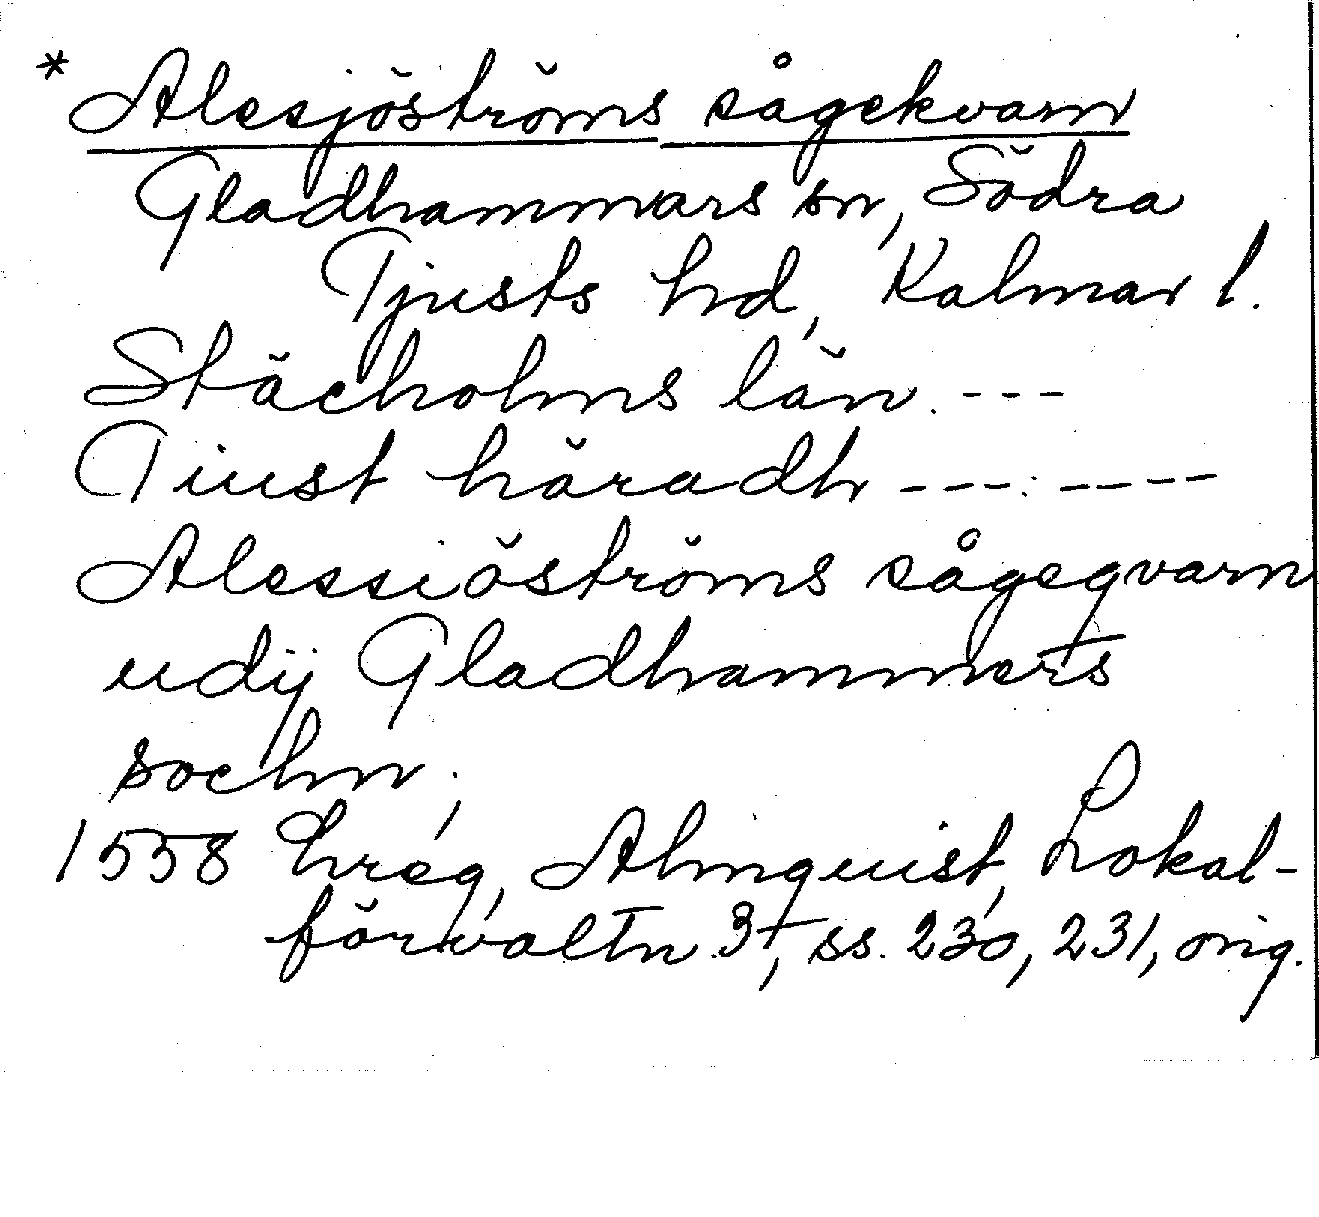 * Alesjöströms sågekvarn
Gladhammars sn, Södra
Tjusts hd, Kalmar l.
Stächolms län. ---
Tiust häradh ---. ----
Alessiöströms sågeqvarn
udij Gladhammers
sochn;
1558 hreg, Almquist, Lokal-
förvaltn 3, ss. 230, 231, orig.